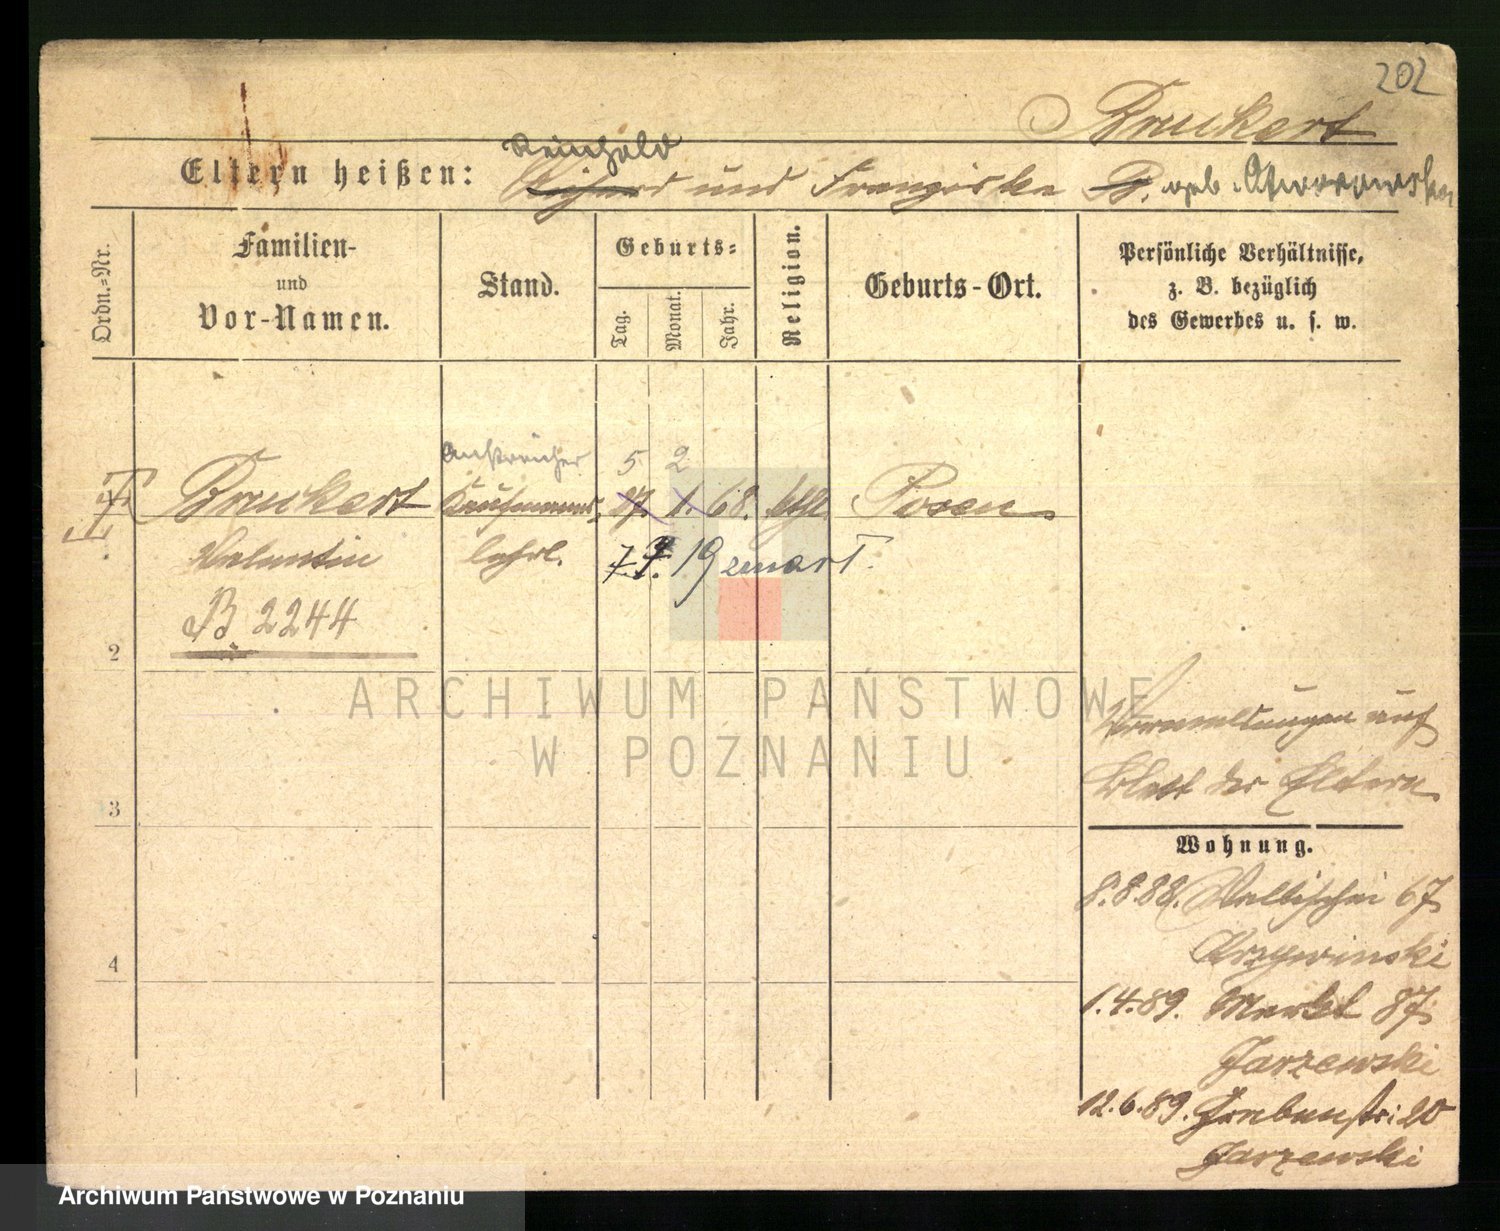 202
Bruckert
Eltern heißen: Reinhold
Richard und Franziska B. geb.
Ordn.=Nr.
Familien-
und
Vor-Namen.
Stand.
Geburts-
Tag.
Monat.
Jahr.
Religion.
Geburts-Ort.
Persönliche Verhältnisse,
z. B. bezüglich
des Gewerbes u. s. w.
Anstreicher 5 2
Bruckert Kaufmanns- 27. 1. 68. kath. Posen
Valentin lehrl.
B 2244
2
3
4
auf
Blatt der Eltern
Wohnung.
8.8.88. Wallischei 67
Krzywinski
1.4.89. Markt 87
Jarzewski
12.6.89. Grabenstr: 20
Jarzewski
ARCHIWUM PAŃSTWOWE
W POZNANIU
Archiwum Państwowe w Poznaniu